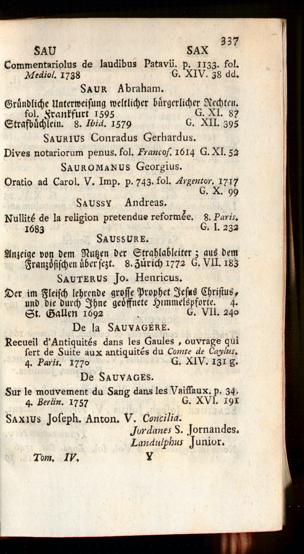 337
SAU SAX
Commentariolus de laudibus Patavii. p. 1133. fol.
Mediol. 1738 G. XIV. 38 dd.
SAUR Abraham.
Gründliche Unterweisung weltlicher bürgerlicher Rechten.
fol. Franckfurt 1595 G. XI. 87
Strafbüchlein. 8. Ibid. 1579 G. XII. 395
SAURIUS Conradus Gerhardus.
Dives notariorum penus. fol. Francof. 1614 G. XI. 52
SAUROMANUS Georgius.
Oratio ad Carol. V. Imp. p. 743. fol. Argentor. 1717
G. X. 99
SAUSSY Andreas.
Nullité de la religion pretendue reformée. 8. Paris.
1683 G. I. 232
SAUSSURE.
Anzeige von dem Nutzen der Strahlableiter; aus dem
Französischen übersezt. 8. Zürich 1772 G. VII. 183
SAUTERUS Jo. Henricus.
Der im Fleisch lehrende grosse Prophet Jesus Christus,
und die durch Ihne geöffnete Himmelspforte. 4.
St. Gallen 1692 G. VII. 240
De la SAUVAGERE.
Recueil d'Antiquités dans les Gaules, ouvrage qui
sert de Suite aux antiquités du Comte de Caylus.
4. Paris. 1770 G. XIV. 131 g.
De SAUVAGES.
Sur le mouvement du Sang dans les Vaissaux. p. 34.
4. Berlin. 1757 G. XVI. 191
SAXIUS Joseph. Anton. V. Concilia.
Jordanes S. Jornandes.
Landulphus Junior.
Tom. IV. Y